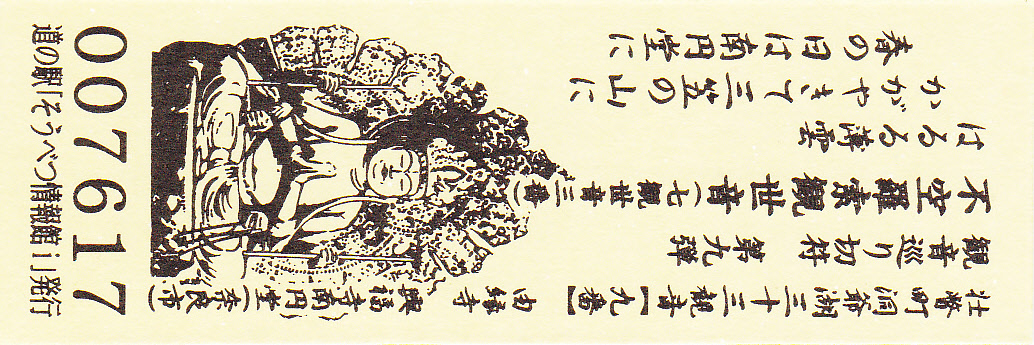 壮瞥町 洞爺湖三十三観音【九番】
由縁寺 興福寺南円堂(奈良市)
観音巡り切符 第九弾
不空羅索観世音(七観世音三番)
春の日は南円堂に
かがやきて三笠の山に
はるる薄雲
007617
道の駅「そうべつ情報館i」発行